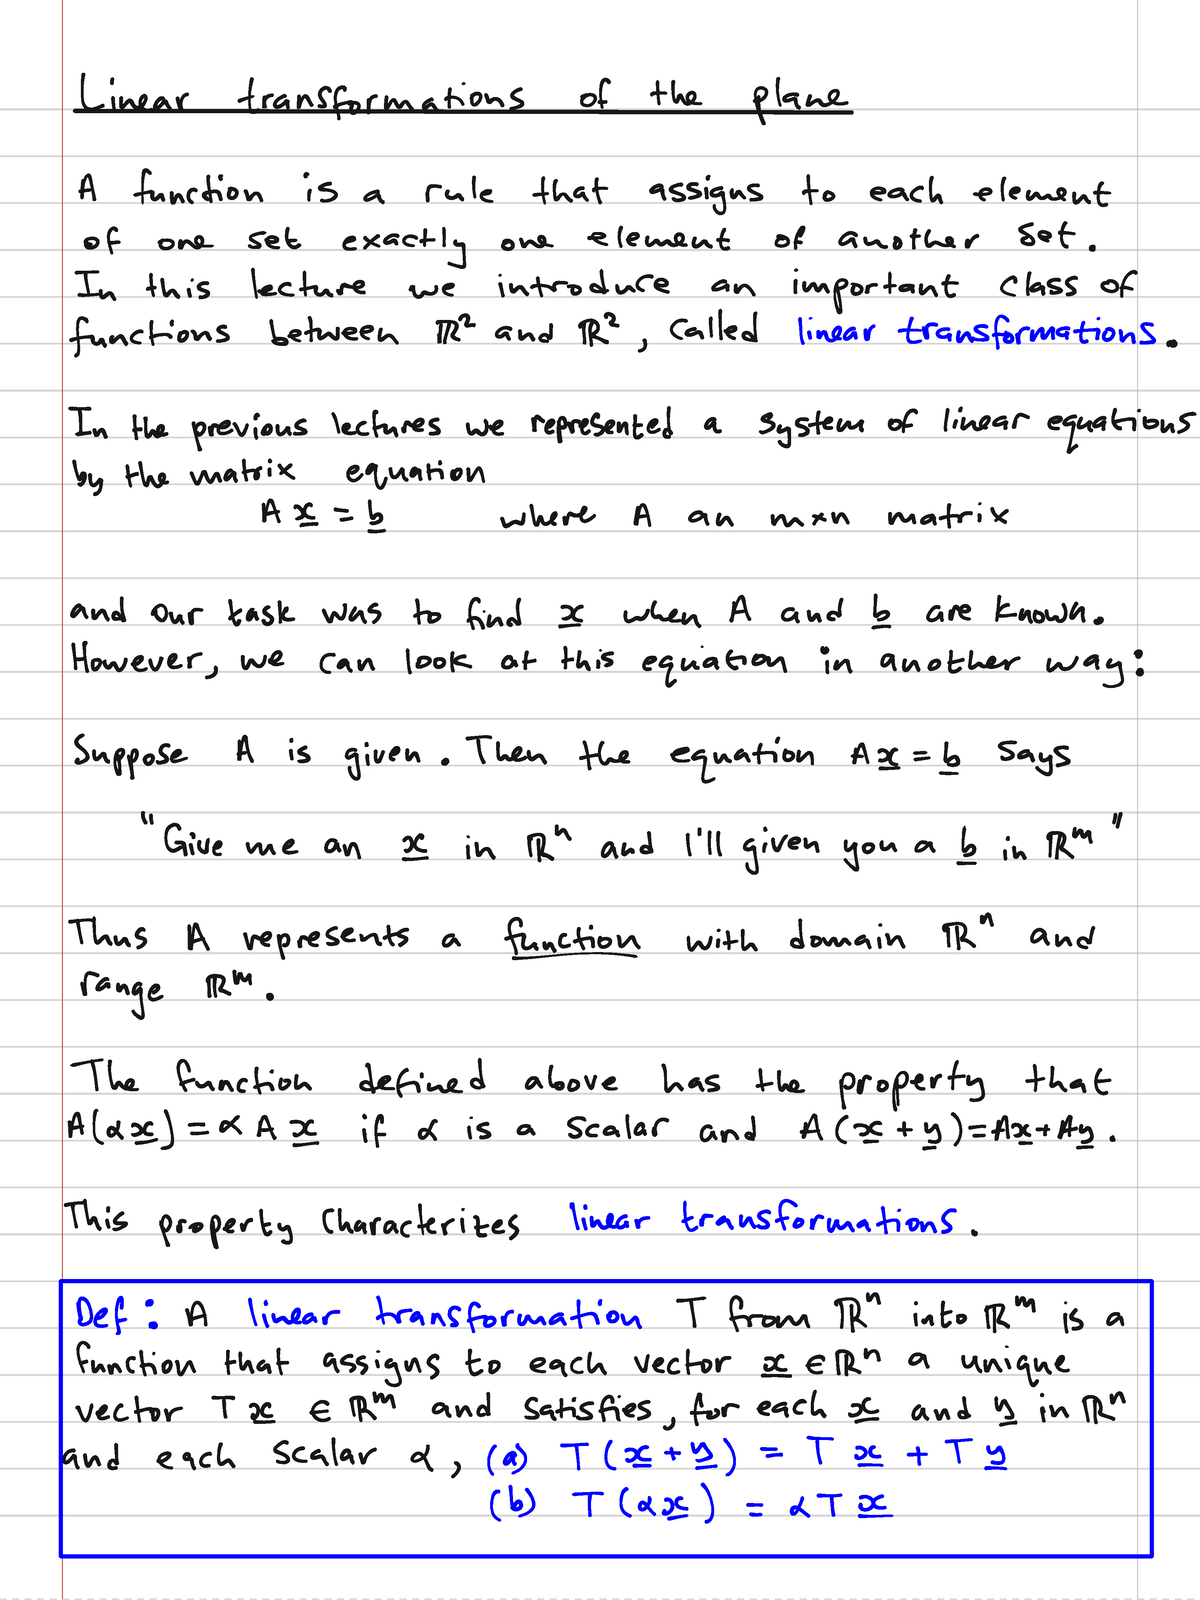 Linear transformations of the plane
A function is a rule that assigns to each element
of one set exactly one element of another set.
In this lecture we introduce an important class of
functions between ℝ² and ℝ², called linear transformations.
In the previous lectures we represented a system of linear equations
by the matrix equation
A x̲ = b̲ where A an m×n matrix
and our task was to find x̲ when A and b̲ are known.
However, we can look at this equation in another way:
Suppose A is given. Then the equation A x̲ = b̲ says
"Give me an x̲ in ℝⁿ and I'll given you a b̲ in ℝᵐ"
Thus A represents a function with domain ℝⁿ and
range ℝᵐ.
The function defined above has the property that
A(αx̲) = α A x̲ if α is a scalar and A(x̲ + y̲) = Ax̲ + Ay̲.
This property characterizes linear transformations.
Def: A linear transformation T from ℝⁿ into ℝᵐ is a
function that assigns to each vector x̲ ∈ ℝⁿ a unique
vector T x̲ ∈ ℝᵐ and satisfies, for each x̲ and y̲ in ℝⁿ
and each scalar α, (a) T(x̲ + y̲) = T x̲ + T y̲
(b) T(αx̲) = αT x̲